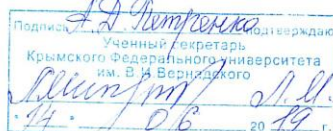 Подпись А.Д. Петренко подтверждаю
Ученый секретарь
Крымского Федерального университета
им. В.И. Вернадского
Л.М.
"14" 06 2019